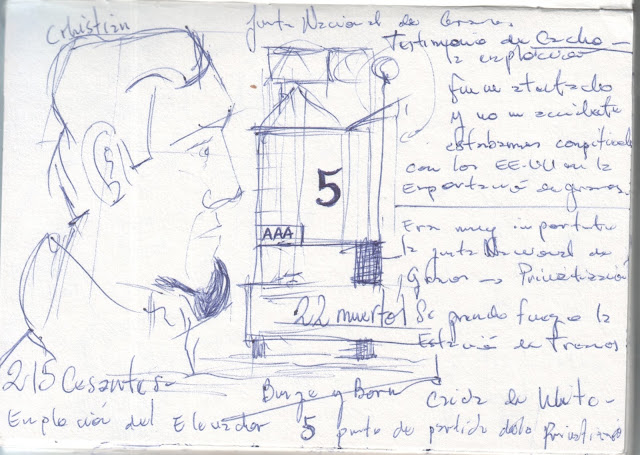 Crhistian
Junta Nacional de Granos
Testimonio de Cacho —
la explosión
fue un atentado
y no un accidente
estabamos compitiendo
con los EE.UU en la
Exportación de granos.
5
AAA
Era muy importante
la Junta Nacional de
Granos → Privatización
22 muertos
Se prendo fuego la
Estación de Trenes.
215 Cesantes -
Bunge y Born
Caida de Mito -
Explosión del Elevador 5 punto de partida de la Privatización